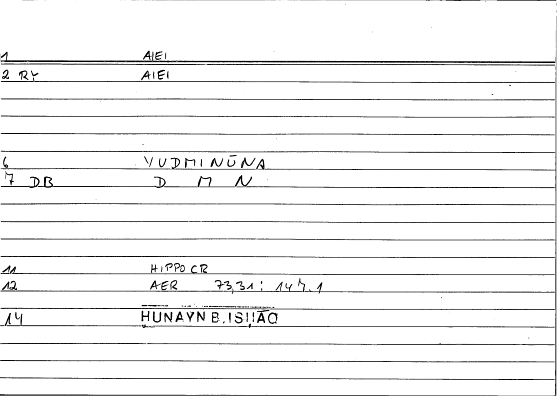 1 AIEI
2 RY AIEI
6 YUDMINŪNA
7 DB D M N
11 HIPPOCR
12 AER 73,31: 147.1
14 ḤUNAYN B. ISḤĀQ